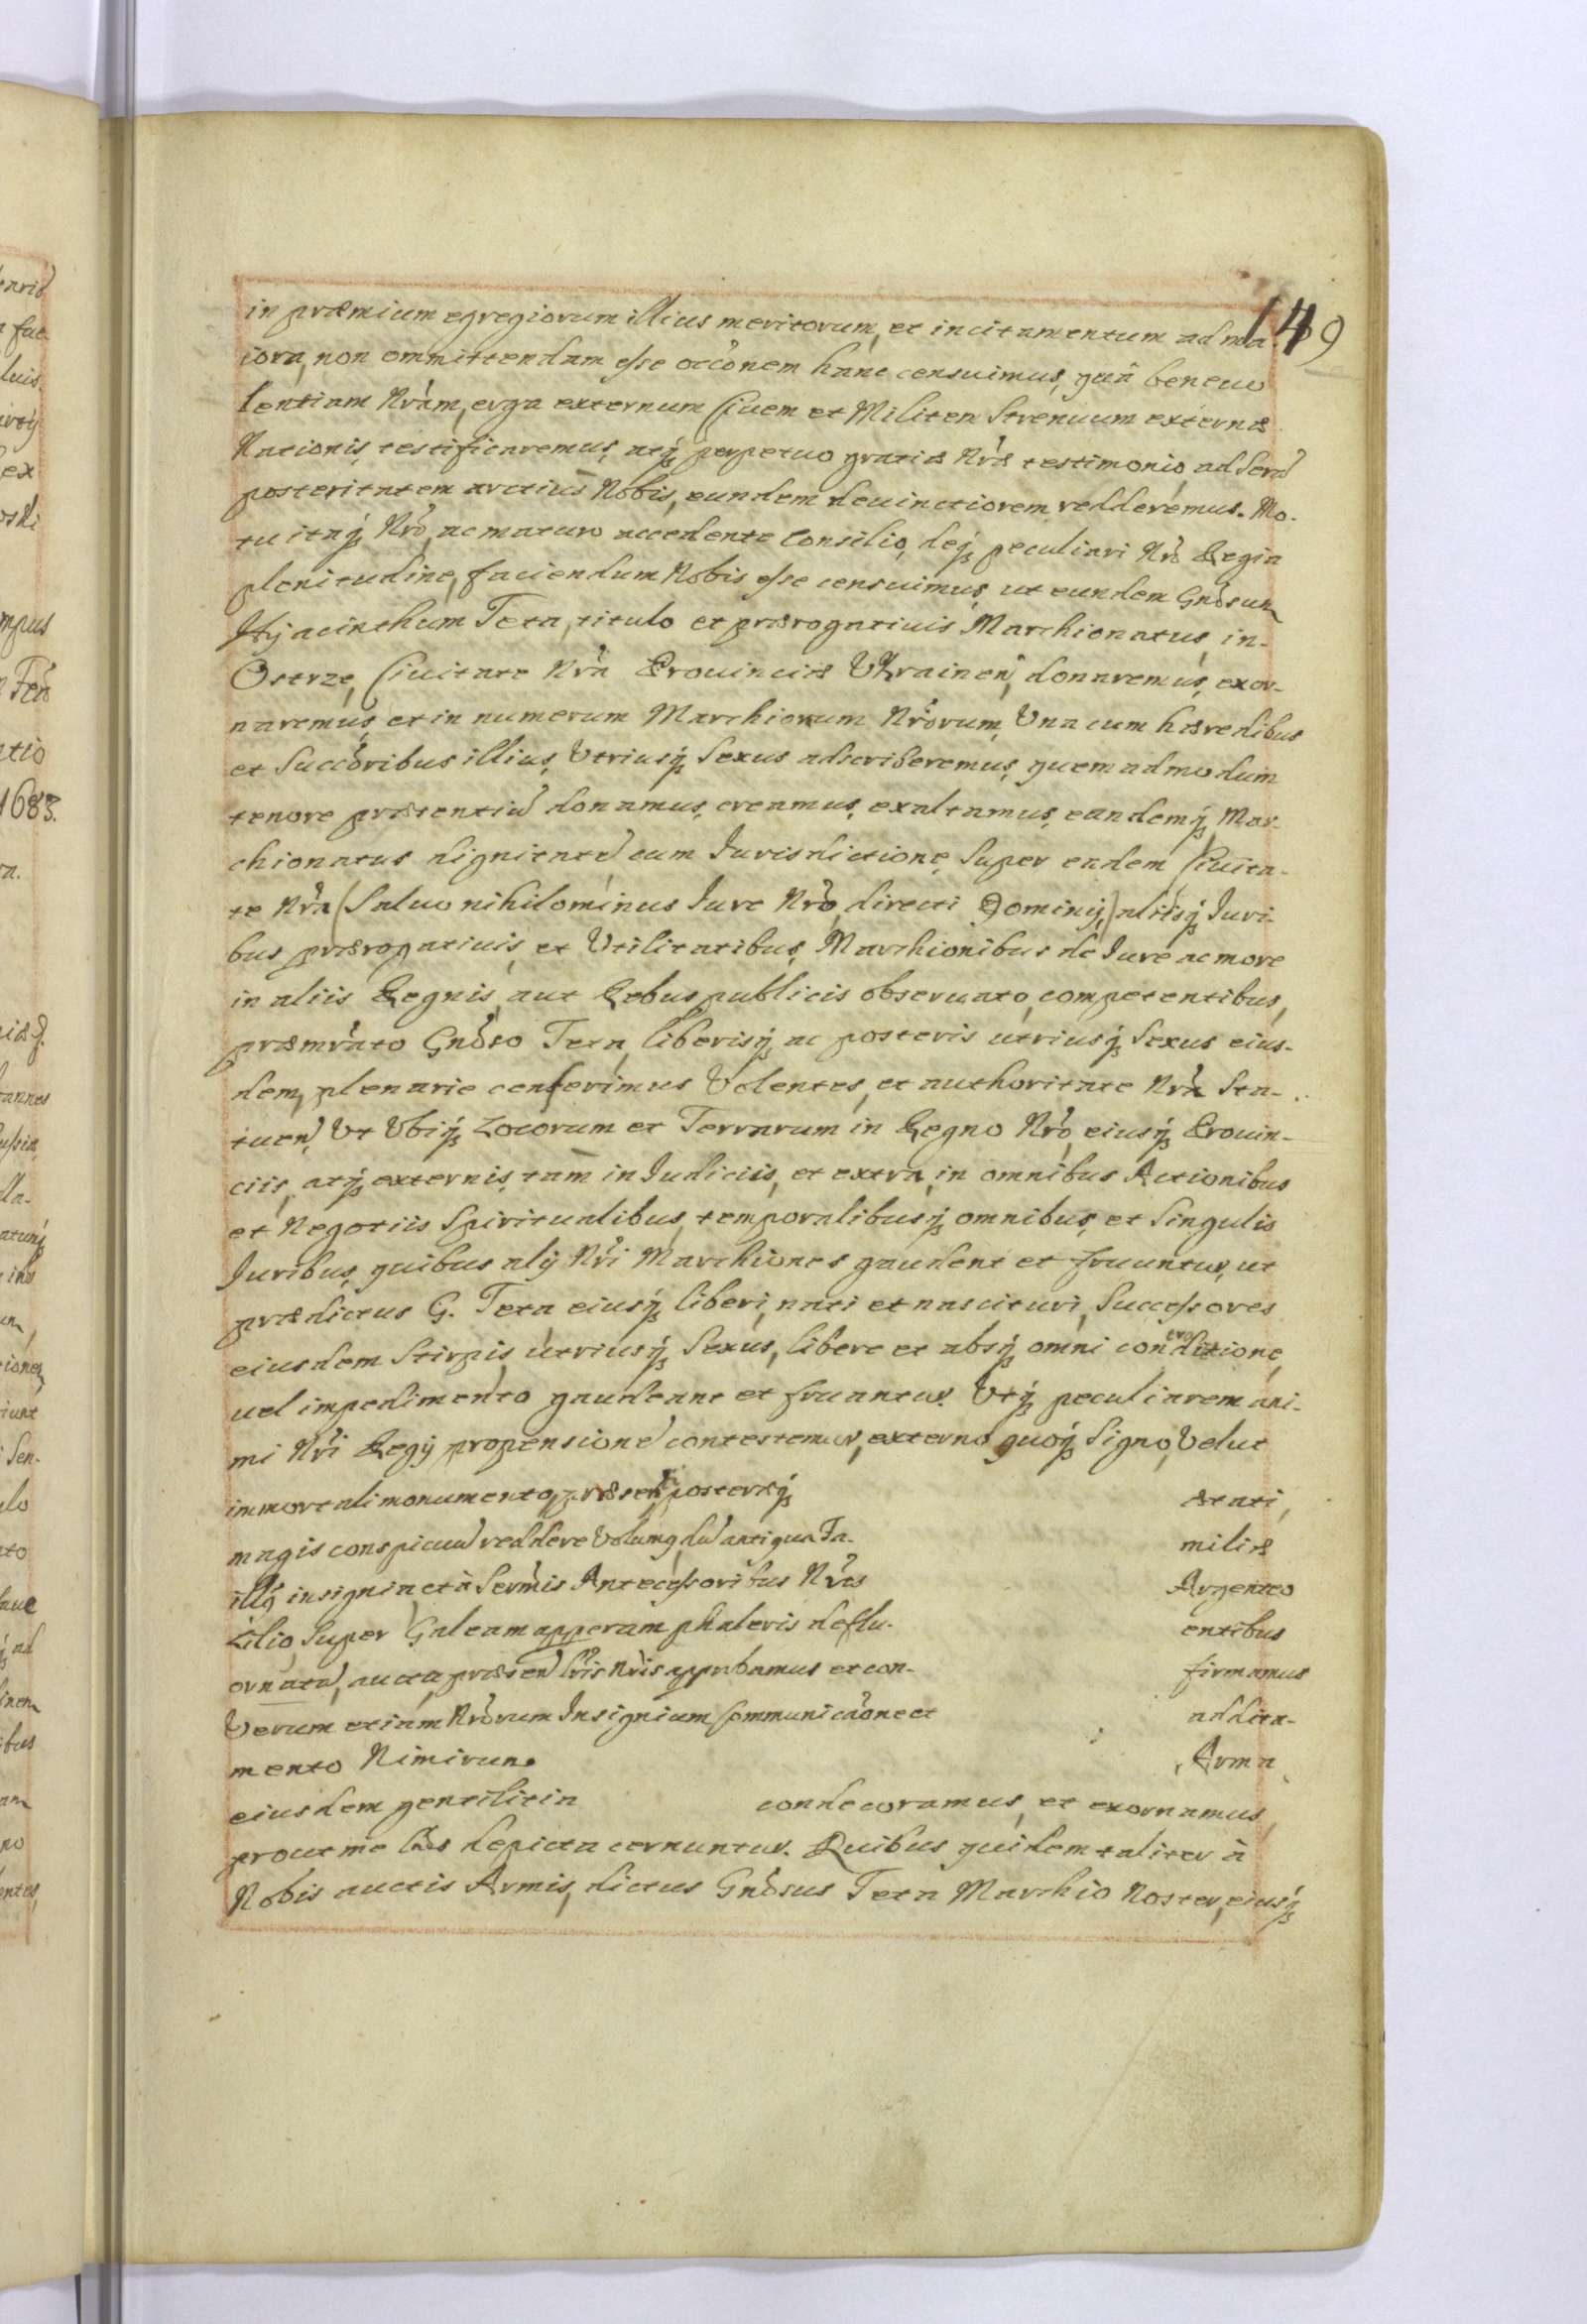 149
in præmium egregiorum illius meritorum, et incitamentum ad ma-
iora, non ommittendam esse occõnem hanc censuimus, quâ beneuo
lentiam Nrãm, erga externum Ciuem et Militem Strenuum externæ
Nationis, testificaremus, atq perpetuo gratiæ Nræ testimonio, ad Seraᵈ
posteritatem arctius Nobis, eundem deuinctiorem redderemus. Mo-
tu itaq Nrõ, ac maturo accedente Consilio, deq peculiari Nrã Regia
plenitudine, faciendum Nobis esse censuimus, ut eundem Gnõsum
Hyacinthum Teta, titulo et prærogatiuis Marchionatus, in-
Osterze, Ciuitate Nrã Prouinciæ Vkrainen, donaremus, exor-
naremus, et in numerum Marchionum Nrõrum, Vna cum hæredibus
et Succõribus illius, Vtriusq Sexus adscriberemus, quem admodum
tenore præsentiũ donamus, creamus, exaltamus, eandemq Mar-
chionatus dignitatẽ cum Iurisdictione, Super eadem Ciuita-
te Nrã (Saluo nihilominus Iure Nrõ, directi Dominij,) aliisq Iuri-
bus prærogatiuis, et Vtilitatibus, Marchionibus de Iure ac more
in aliis Regnis, aut Rebus publicis obseruato, competentibus,
præmrãto Gnõso Teta, liberisq ac posteris utriusq Sexus eius-
dem, plenarie conferimus Volentes, et authoritate Nrã Sta-
tuen, Vt Vbiq Locorum et Terrarum in Regno Nrõ, eiusq Prouin-
ciis, atq externis, tam in Iudiciis, et extra, in omnibus Actionibus
et Negotiis Spiritualibus, temporalibusq omnibus, et Singulis
Iuribus, quibus alij Nrĩ Marchiones gaudent et fruuntur, ut
prædictus G. Teta, eiusq liberi, nati et nascituri, Successores
eiusdem Stirpis, utriusq Sexus, libere et absq omni conditione,
uel impedimento gaudeant et fruantur. Vtq peculiarem ani-
mi Nrĩ Regij propensionẽ contestemur, externo quoq Signo, Velut
immortali monumento, præsen, posteræq ætati,
magis conspicuũ reddere Volumq, dũ antiqua Fa- miliæ
illiq insignia et à Sermis Antecessoribus Nrĩs Argenteo
Lilio, Super Galeam apperam phaleris deflu- entibus
ornata, aucta, præsen lrĩs Nrĩs approbamus et con- firmamus
Verum etiam Nrõrum Insignium Communicãone et addita-
mento Nimirum. Arma
eiusdem gentilitia condecoramus, et exornamus,
prout depicta cernuntur. Quibus quidem taliter à
Nobis auctis Armis, dictus Gnõsus Teta Marchio Noster, eiusq